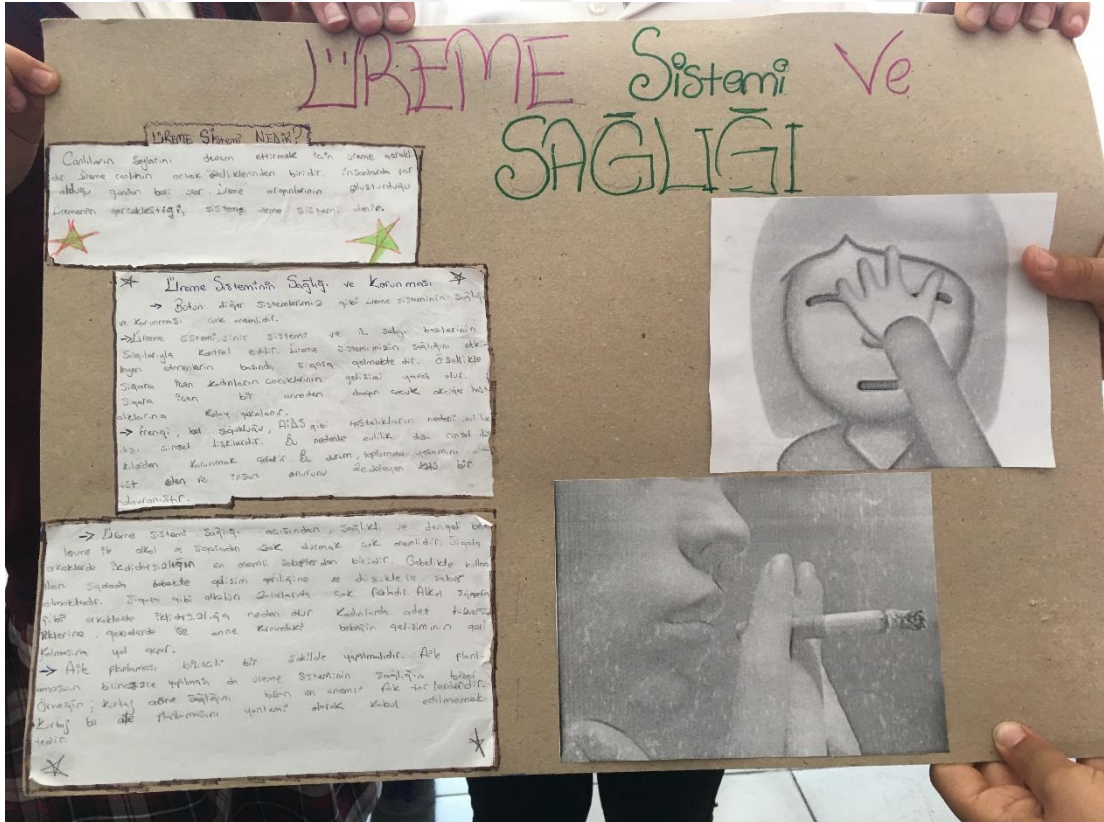 ÜREME Sistemi Ve
SAĞLIĞI
ÜREME Sistemi NEDİR?
Canlıların Soylarını devam ettirmek için üreme gerekli
dir üreme canlının ortak özeliklerinden biridir. insanlarda var
olduğu günden beri var. üreme organlarının oluşturduğu
üremenin gerçekleştiği, sisteme üreme sistemi denir.
Üreme Sisteminin Sağlığı ve Korunması
→ Bütün diğer sistemlerimiz gibi üreme sisteminin sağlığı
ve korunması çok önemlidir.
→ Üreme sistemi, sinir sistemi ve iç salgı bezlerinin
Salgılarıyla kontrol edilir. üreme sistemimizin sağlığını etki-
leyen etmenlerin başında sigara gelmektedir. Özellikle
Sigara içen kadınların çocuklarının gelişimi yavaş olur.
Sigara içen bir anneden doğan çocuk akciğer hast
alıklarına kolay yakalanır.
→ frengi, bel soğukluğu, AİDS gibi hastalıkların nedeni evlilik
dışı cinsel ilişkilerdir. Bu nedenle evlilik dışı cinsel iliş
kilerden korunmak gerekir. Bu durum, toplumsal yaşamını
üst eden ve insan onurunu zedeleyen kötü bir
davranıştır.
→ Üreme sistemi sağlığı açısından, sağlıklı ve dengeli bes
lenme ile alkol ve sigaradan uzak durmak çok önemlidir. Sigara
erkeklerde iktidarsızlığın en önemli sebeplerden biridir. Gebelikte kullan
ılan sigarada bebekte gelişim geriliğine ve düşüklere sebep
olmaktadır. Sigara gibi alkolün zararlarıda çok fazladır. Alkol sigara
gibi erkeklerde iktidarsızlığa neden olur kadınlarda adet
liklerine, gebelerde ise anne karnındaki bebeğin gelişiminin geri
kalmasına yol açar.
→ Aile planlaması bilinçli bir şekilde yapılmalıdır. Aile planl-
amasının bilinçsizce yapılması da üreme sisteminin sağlığını
Örneğin, kürtaj anne sağlığını bozan en önemli faktörlerdendir.
Kürtaj bir aile planlamasını yöntemi olarak kabul edilmemek
tedir.